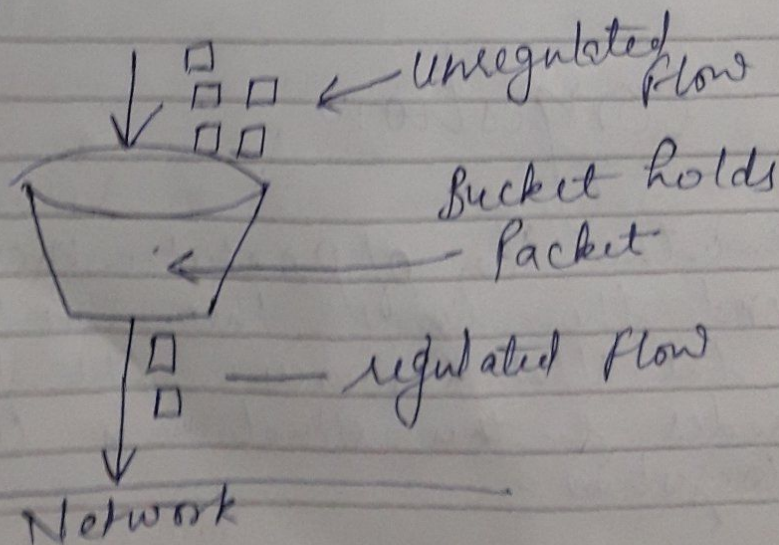 Unregulated
Flow
Bucket holds
Packet
regulated Flow
Network